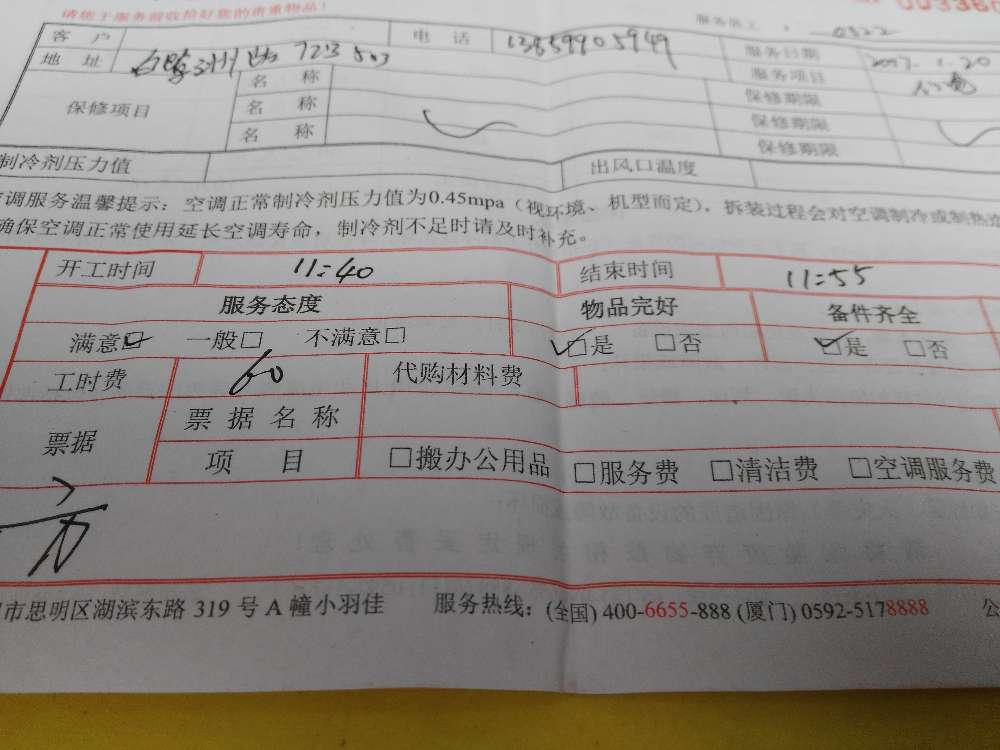 请您于服务前收拾好您的贵重物品！ 00336
服务员工： 0322
客户 电话 13859905949 服务日期 2017.1.20
地址 白鹭洲路 723 503 服务项目
保修项目 名称 保修期限
名称 保修期限
名称 保修期限
制冷剂压力值 出风口温度
调服务温馨提示：空调正常制冷剂压力值为0.45mpa（视环境、机型而定），拆装过程会对空调制冷或制热
确保空调正常使用延长空调寿命，制冷剂不足时请及时补充。
开工时间 11:40 结束时间 11:55
服务态度 物品完好 备件齐全
满意☑ 一般□ 不满意□ ☑是 □否 ☑是 □否
工时费 60 代购材料费
票据 票据名称
项目 □搬办公用品 □服务费 □清洁费 □空调服务费
市思明区湖滨东路 319 号 A 幢小羽佳 服务热线：(全国) 400-6655-888 (厦门) 0592-5178888 公